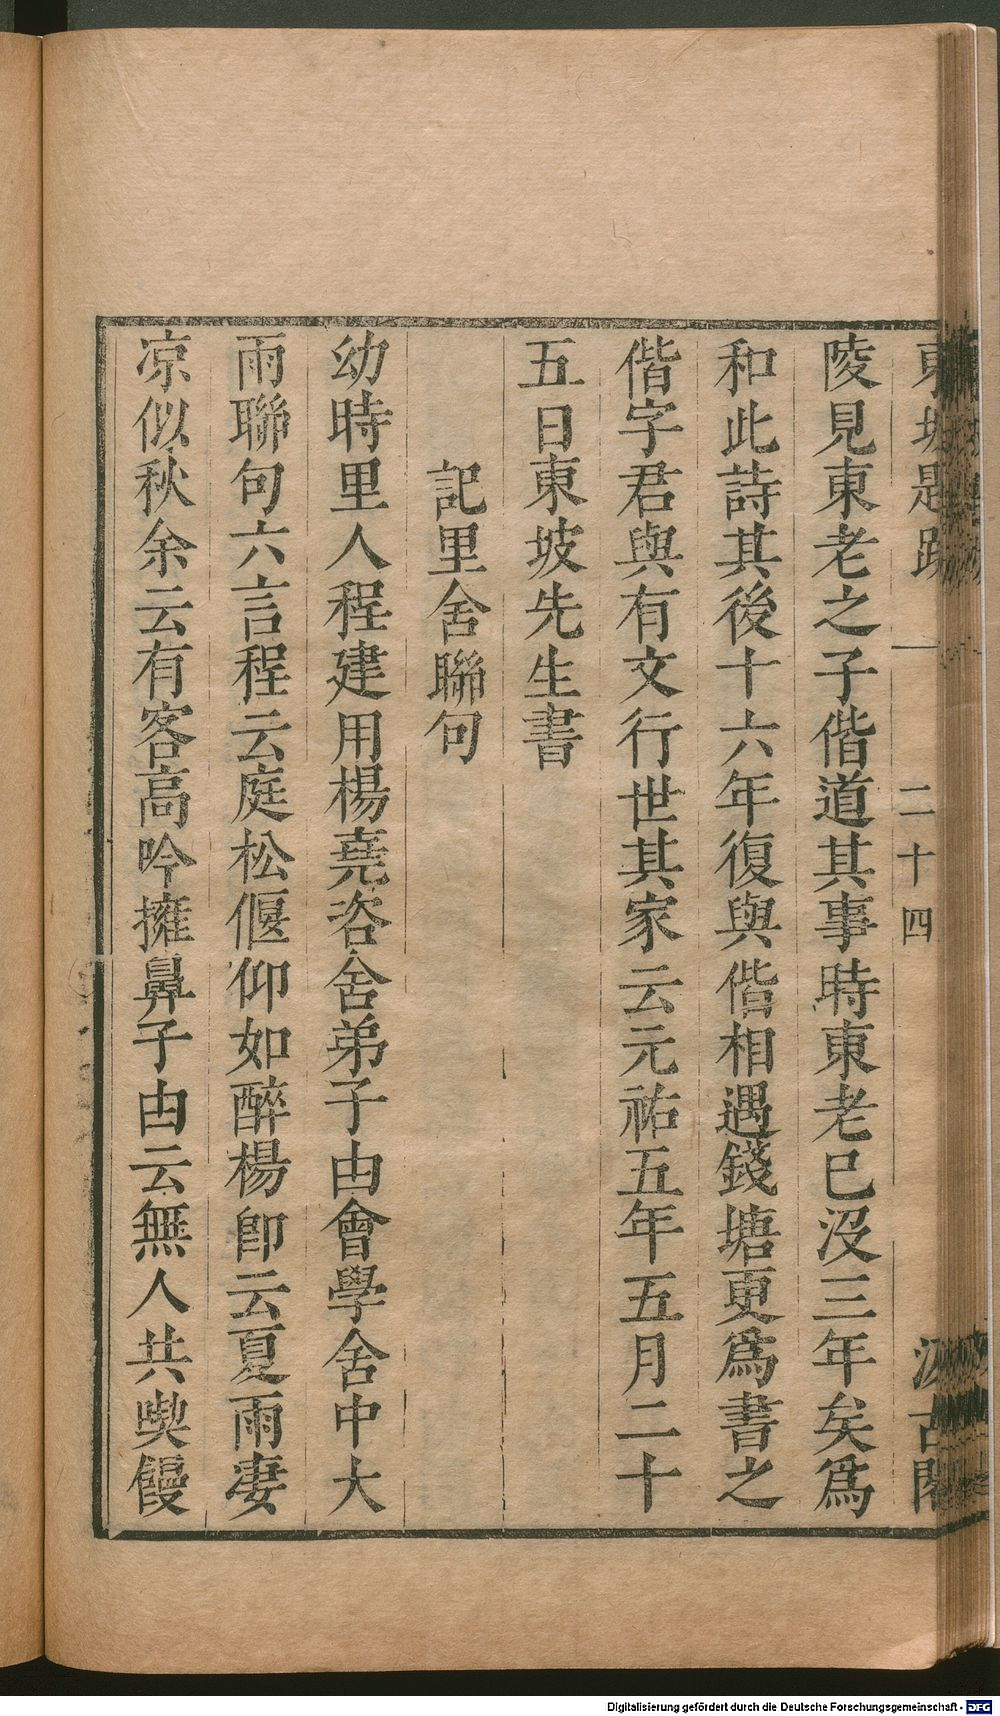 東坡題跋 一 二十四 汲古閣
陵見東老之子偕道其事時東老已沒三年矣爲
和此詩其後十六年復與偕相遇錢塘更爲書之
偕字君與有文行世其家云元祐五年五月二十
五日東坡先生書
記里舍聯句
幼時里人程建用楊堯咨舍弟子由會學舍中大
雨聯句六言程云庭松偃仰如醉楊卽云夏雨凄
凉似秋余云有客高吟擁鼻子由云無人共喫饅
Digitalisierung gefördert durch die Deutsche Forschungsgemeinschaft - DFG